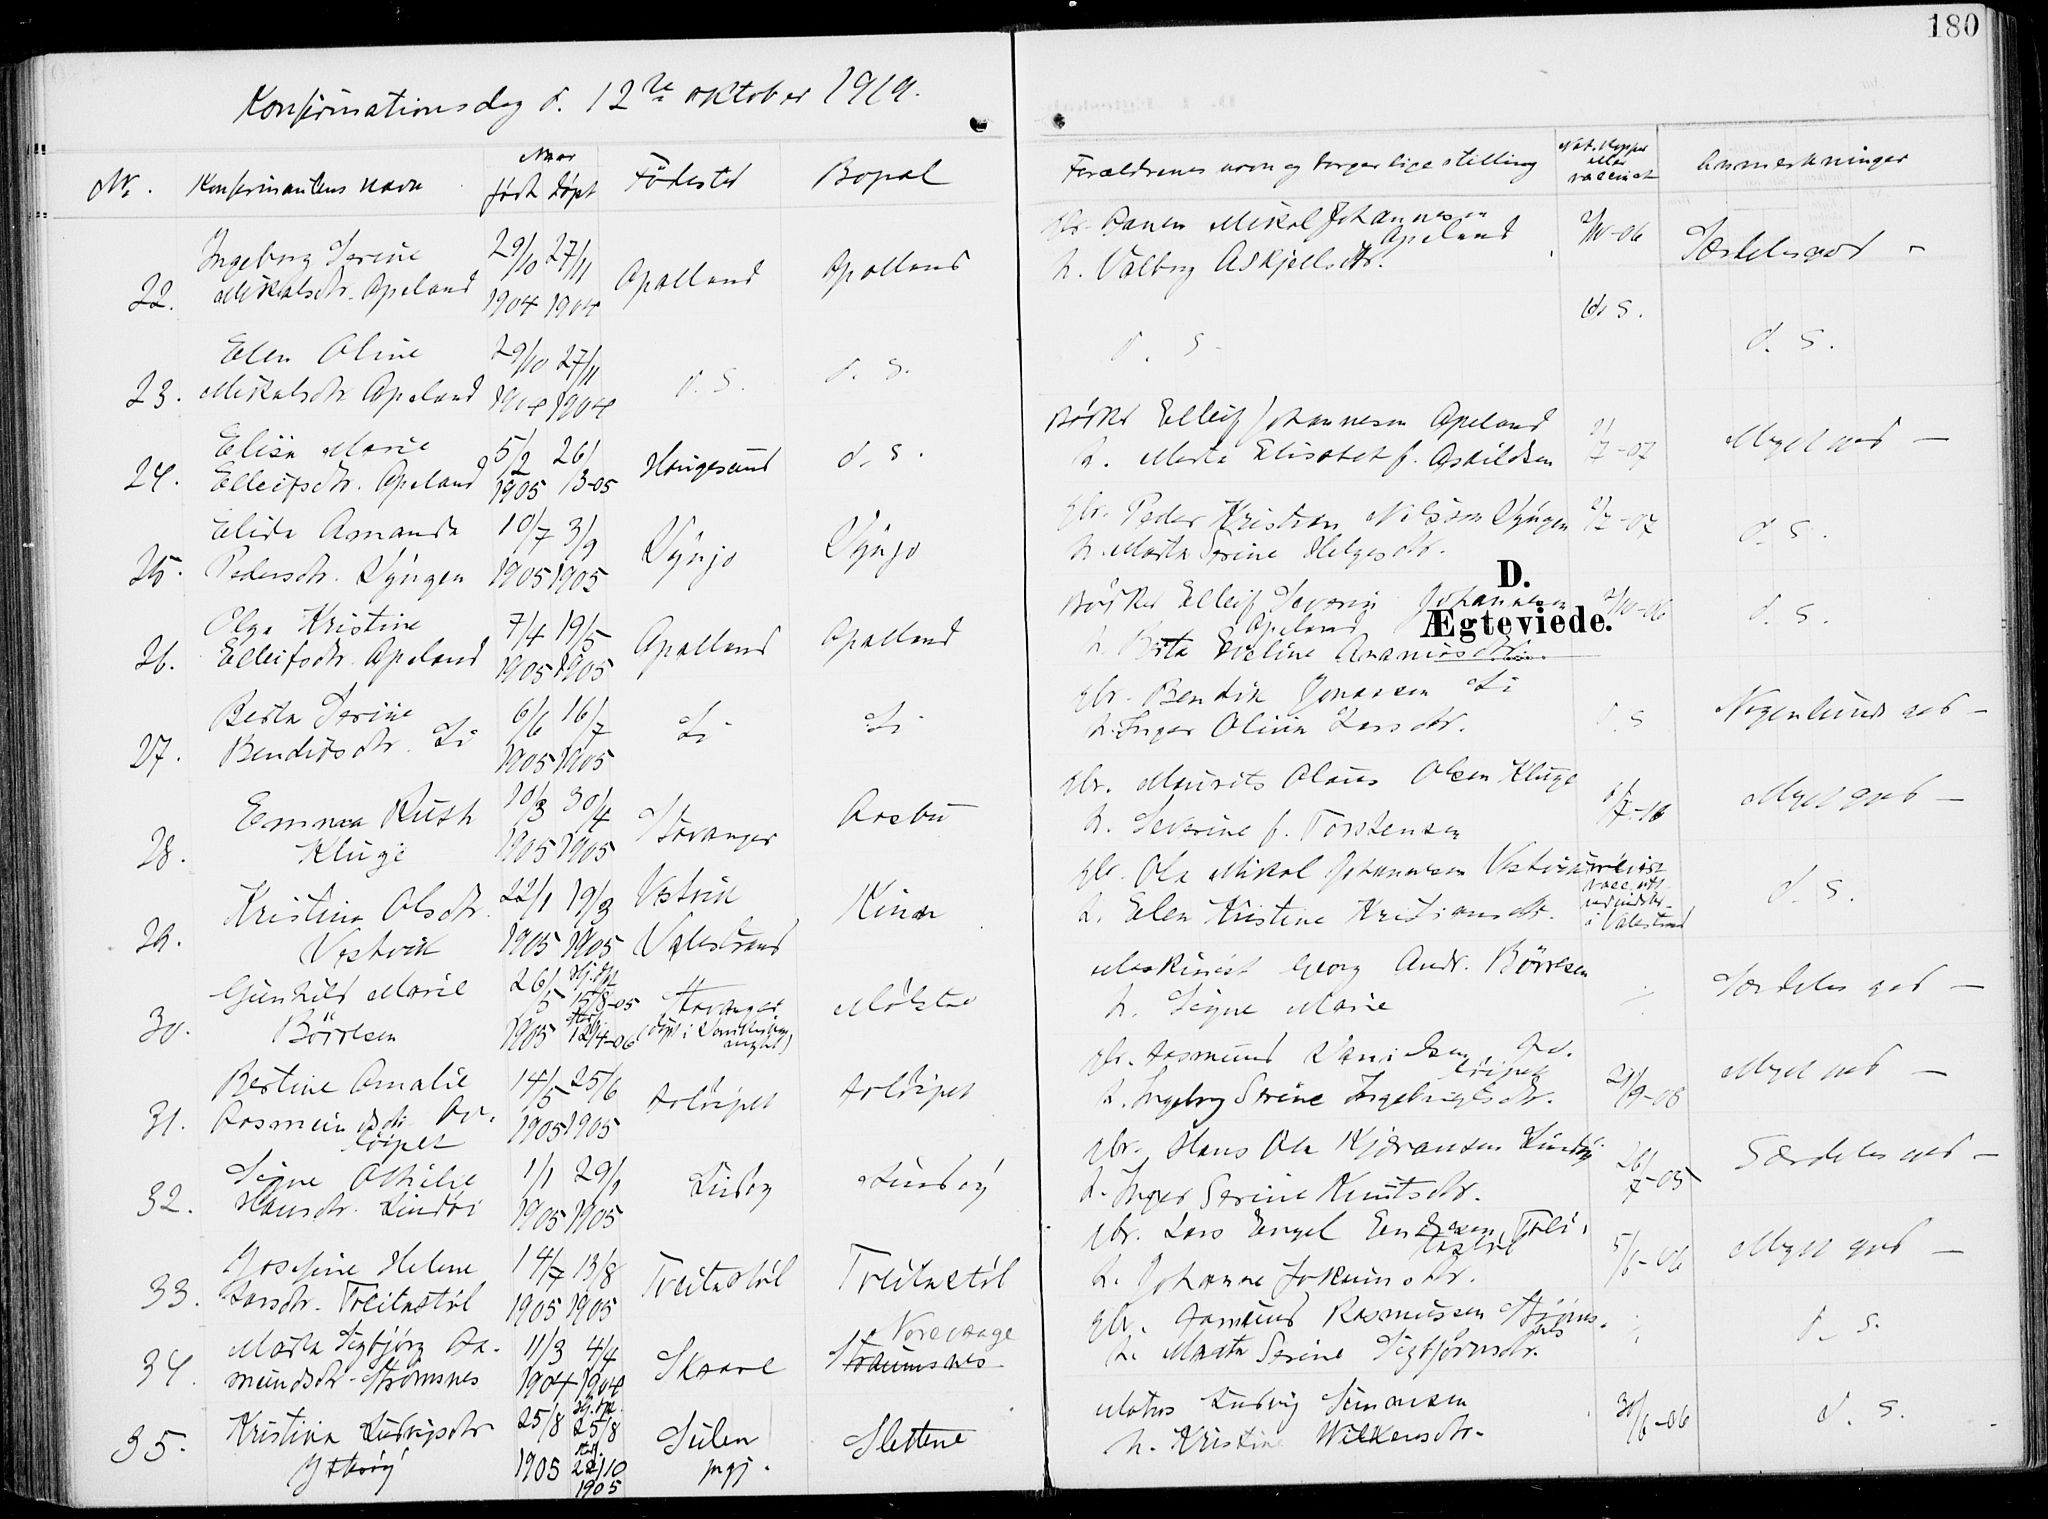 180
Konfirmationsdag d. 12te oktober 1919.
No. Konfirmantens navn Naar født døpt Födested Bopæl Forældrenes navn og borgerlige stilling Nat. kopper eller vaccinert Anmerkninger
22. Ingeborg Serine Mikalsdtr. Apeland 29/10 1904 27/11 1904 Apalland Apalland
gbr. Mikal Johannesen Apeland
h. Valborg Askjellsdtr. 2/10-06 Særdeles god -
23. Elen Oline Mikalsdtr. Apeland 29/10 1904 27/11 1904 d. s. d. s.
d. s. d. s. d. s.
24. Elisa Marie Elleifsdtr. Apeland 5/2 1905 26/3-05 Haugesund d. s.
Bödker Elleif Johannesen Apeland
h. Marta Elisabet f. Askildsen 2/7-07 Meget god -
25. Elida Amanda Pedersdtr. 10/7 1905 3/9 1905
gbr. Peder Kristian Nilsson
h. Marta Serine Helgesdtr. 2/7-07 d. s.
D.
Ægteviede.
26. Olga Kristine Elleifsdtr. Apeland 7/4 1905 19/5 1905 Apalland Apalland
Bödker Elleif Severin Johannesen Apeland
h. Berta Eveline Ananiasdtr. 2/10-06 d. s.
27. Berta Serine Bendiksdtr. Li 6/6 1905 16/7 1905 Li Li
gbr. Bendik Jonassen Li
h. Inger Olivia Larsdtr. d. s. Nogenlunde god -
28. Emma Ruth Kluge 10/3 1905 30/4 1905 Stavanger Aasbu
gbr. Maurits Olaus Olsen Kluge
h. Severine f. Torstensen Meget god -
29. Kristina Olsdtr. Vestvik 22/1 1905 19/3 1905 Vestvik Valestrand
gbr. Ola Mikal Johannesen Vestvik
h. Elen Kristine Kristiansdtr. i Valestrand d. s.
30. Gunhild Marie Börresen 26/5 1905 Hj.døpt 15/8-05 12/4-06 Stavanger
Maskinist Georg Andr. Börresen
h. Signe Marie Særdeles god -
31. Bertine Amalie Aasmundsdtr. Arlöipet 14/5 1905 25/6 1905 Arlöipet Arlöipet
gbr. Aasmund
h. Ingeborg Serine Ingebrigtsdtr. 21/9-08 Meget god -
32. Signe Othilie Hansdtr. Lindöi 1/1 1905 29/1 1905 Lindöy Lindöy
gbr. Hans Ola Kjöransen Lindöy
h. Inger Serine Knutsdtr. 26/7-05 Særdeles god -
33. Josefine Helene Larsdtr. Treitastöl 14/7 1905 13/8 1905 Treitastöl Treitastöl
gbr. Lars Engel
h. Johanne Jokumsdtr. 5/6-06 Meget god -
34. Marta Sigbjörg Aamundsdtr. Strömsnes 11/3 1904 4/4 1904 Skaare Norevaage Straumsnes
gbr. Aamund Rasmussen Strömsnes
h. Marta Serine Sigbjörnsdtr. d. s.
35. Kristina Ludvigsdtr. 25/8 1905 Hj. dp. 25/8 22/10 1905 Slettene
Matros Ludvig Simonsen
h. Kristine Wilkensdtr. 30/6-06 d. s.